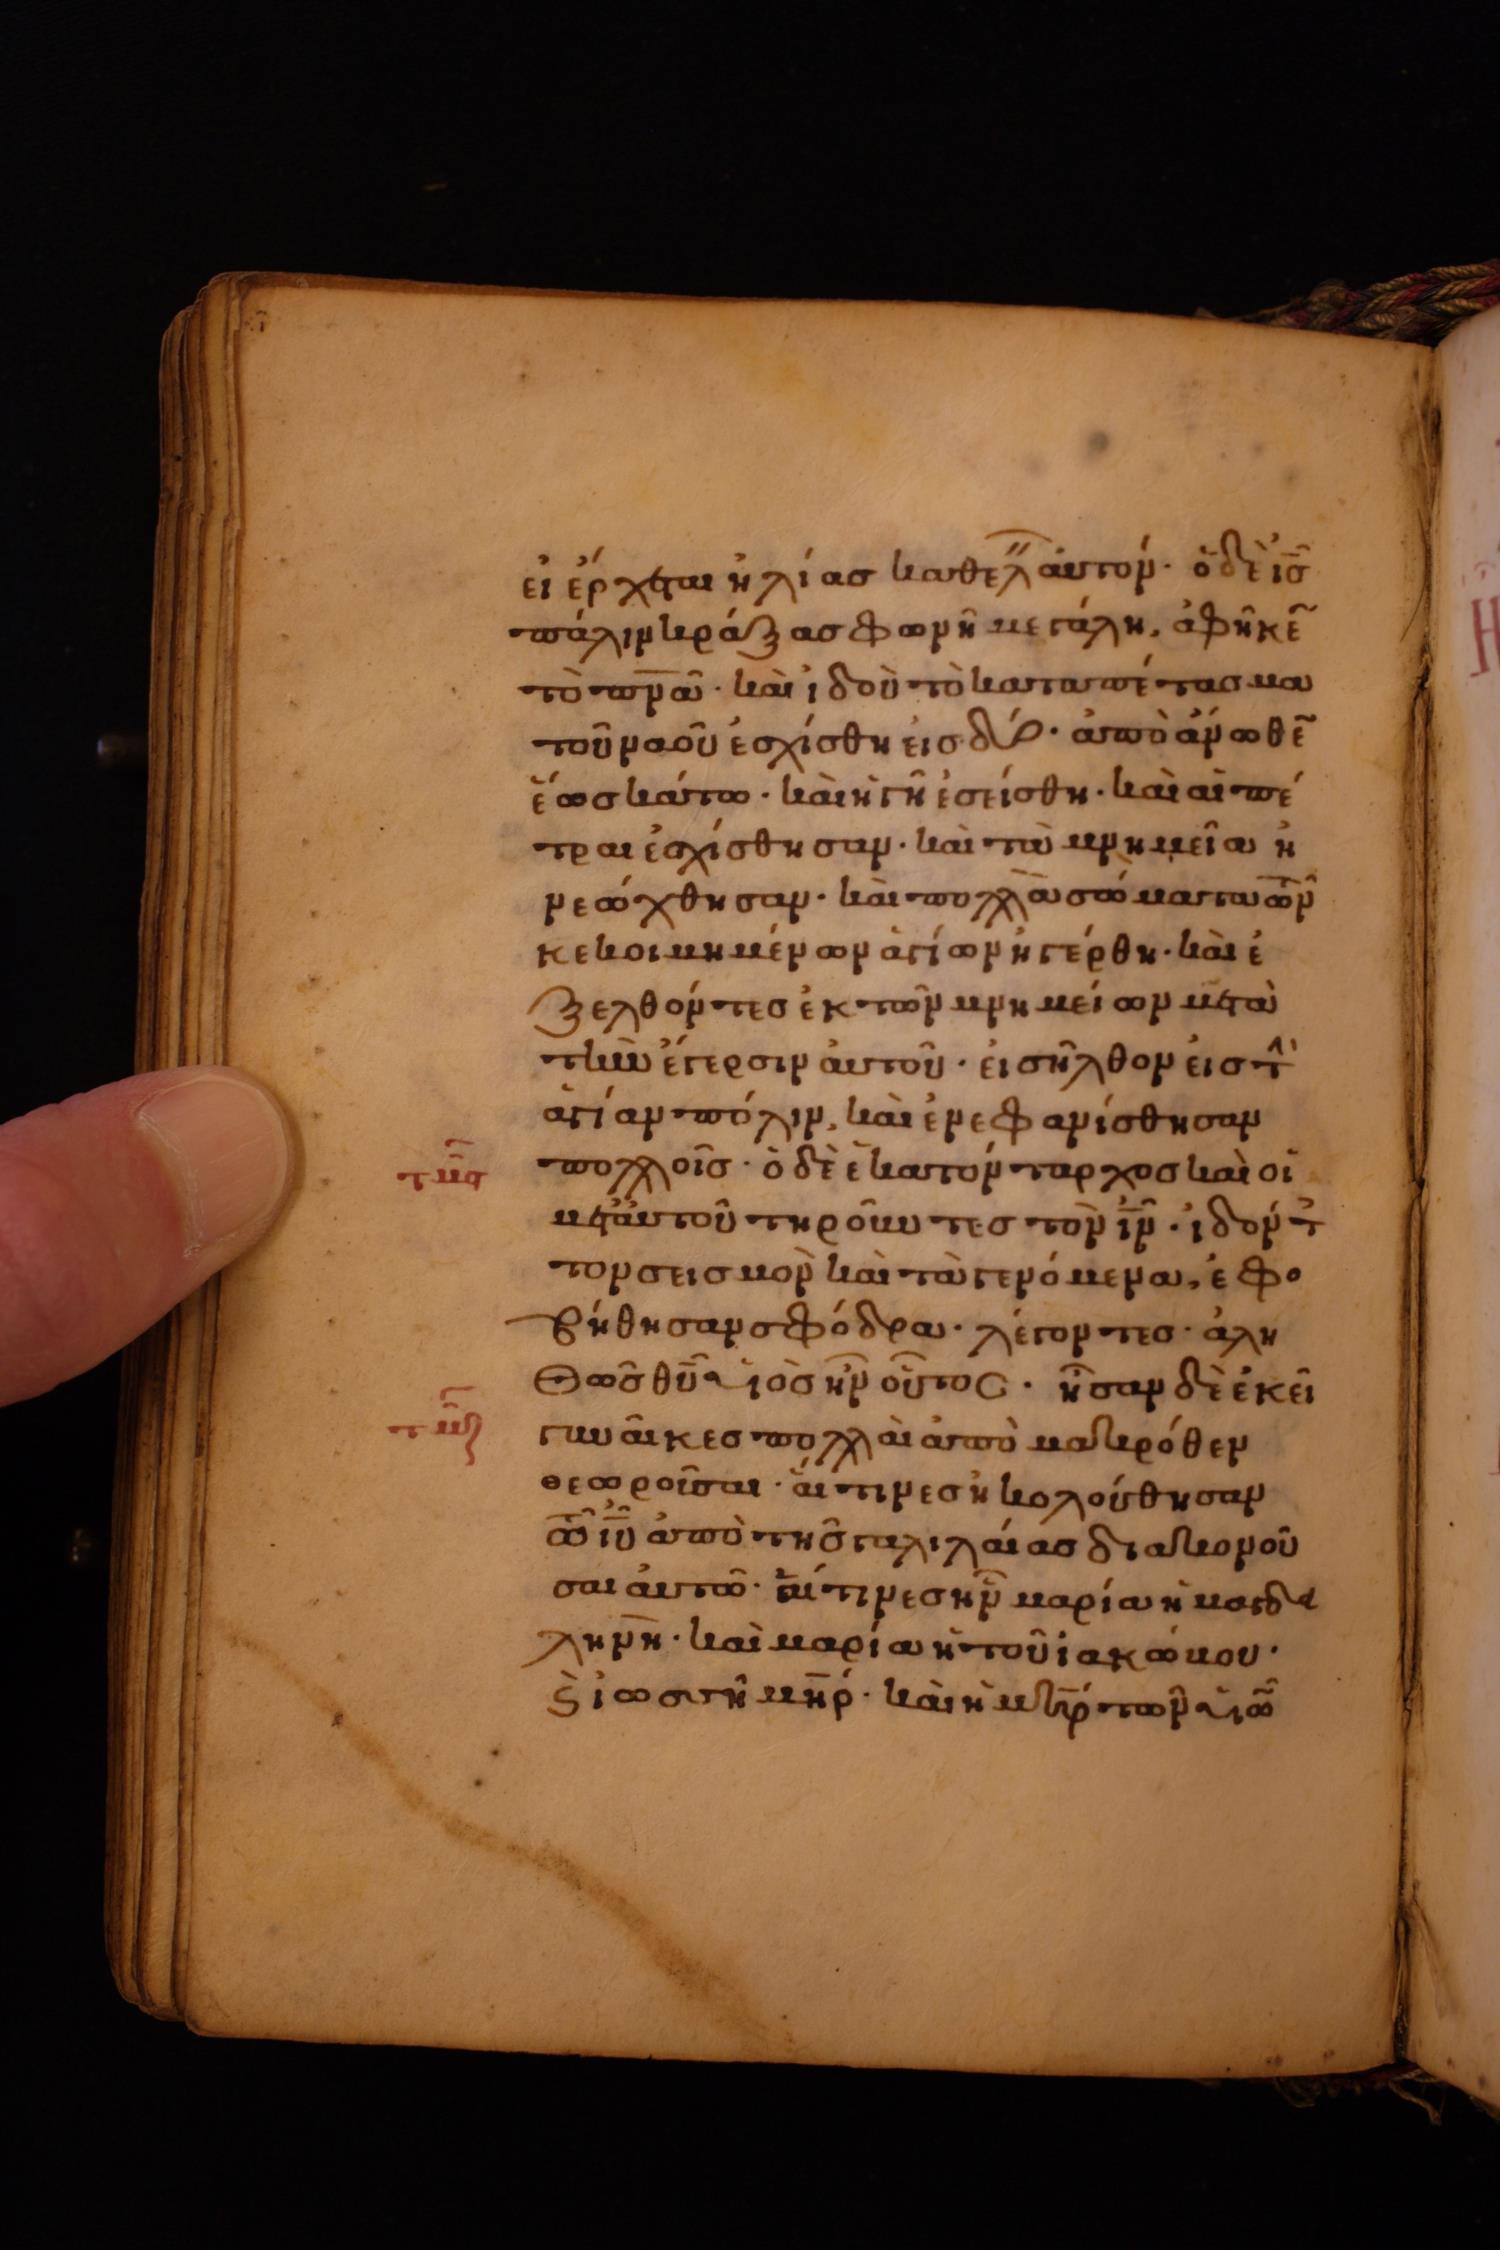 εἰ έρχεται ἠλίας καθελ αυτόν· ὁ δὲ ἰ̅ς̅
πάλιν κράξας φωνῆ μεγάλη, ἀφῆκε̅
τὸ π̅ν̅α̅· καὶ ἰδοὺ τὸ καταπέτασμα
τοῦ ναοῦ ἐσχίσθη εις δύο· ἀπὸ άνωθε̅
ἕως κάτω· καὶ ἡ γῆ ἐσείσθη· καὶ αἱ πέ
τραι ἐσχίσθησαν· καὶ τὰ μνημεῖα ἠ
νεώχθησαν· καὶ πολλὰ σώματα τῶν
κεκοιμημένων ἁγίων ἠγέρθη· καὶ ἐ
ξελθόντες ἐκ τῶν μνημείων μετὰ
τὴν ἔγερσιν ἀυτοῦ· εἰσῆλθον εις τὴν
ἁγίαν πόλιν, καὶ ἐνεφανίσθησαν
τμϛ πολλοῖς· ὁ δὲ ἑκατόνταρχος καὶ οἱ
μετ' ἀυτοῦ τηροῦντες τὸν ἰ̅ν̅· ἰδόντ
τον σεισμὸν καὶ τὰ γενόμενα, ἐφο
βήθησαν σφόδρα· λέγοντες· ἀλη
Θῶς θ̅υ̅ υἱὸς ἦν οὗτος· ἦσαν δὲ ἐκεῖ
τμζ γυναῖκες πολλαὶ ἀπὸ μακρόθεν
θεωροῦσαι· ἅιτινες ἠκολούθησαν
τῶ ἰ̅υ̅ ἀπὸ τῆς γαλιλάιας διακονοῦ
σαι ἀυτῶ· ἅιτινες ἦν μαρία ἡ μαγδα
ληνὴ· καὶ μαρία ἡ τοῦ ἰακώβου·
ϗ ἰωσῆ μη̅ρ̅· καὶ ἡ μη̅ρ̅ τῶν υἱῶ̅